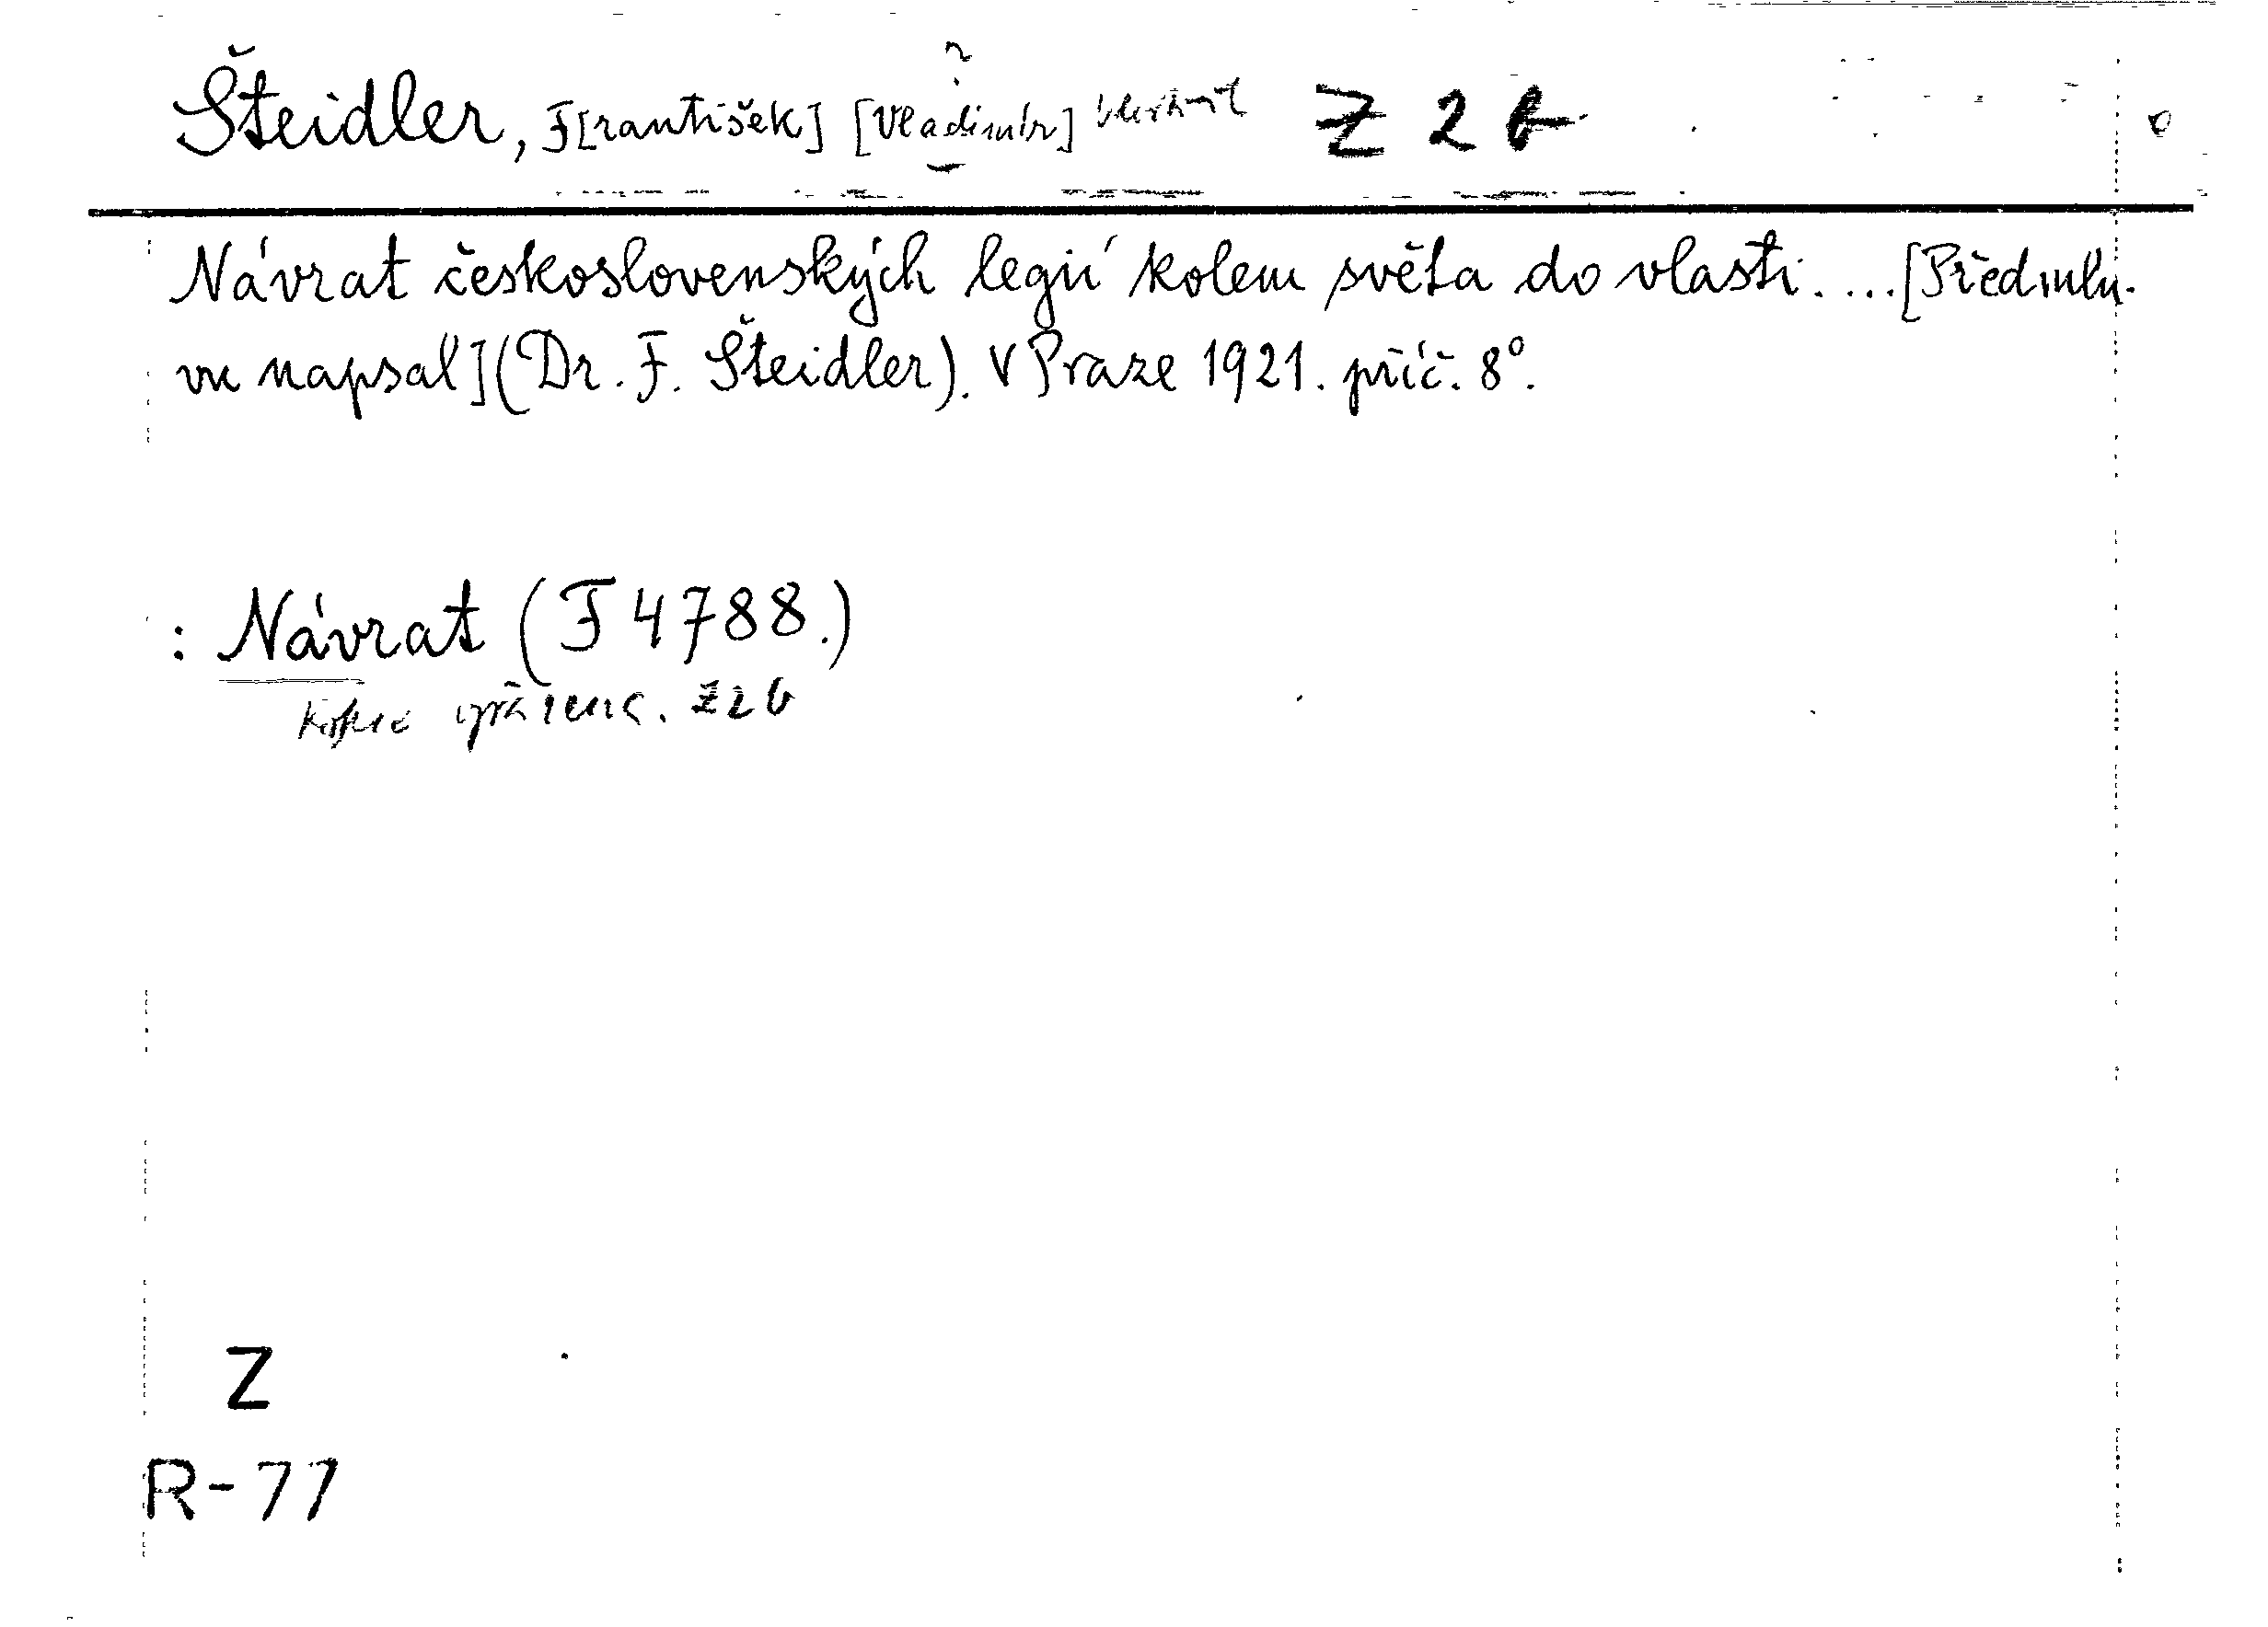 Šteidler, F[rantišek] [Vladimír] Z 2 b
Návrat československých legií kolem světa do vlasti. ... [Předmlu-
vu napsal] (Dr. F. Šteidler). V Praze 1921. příč. 8°.
: Návrat (F 4788.)
Z 2 b
Z
R-77